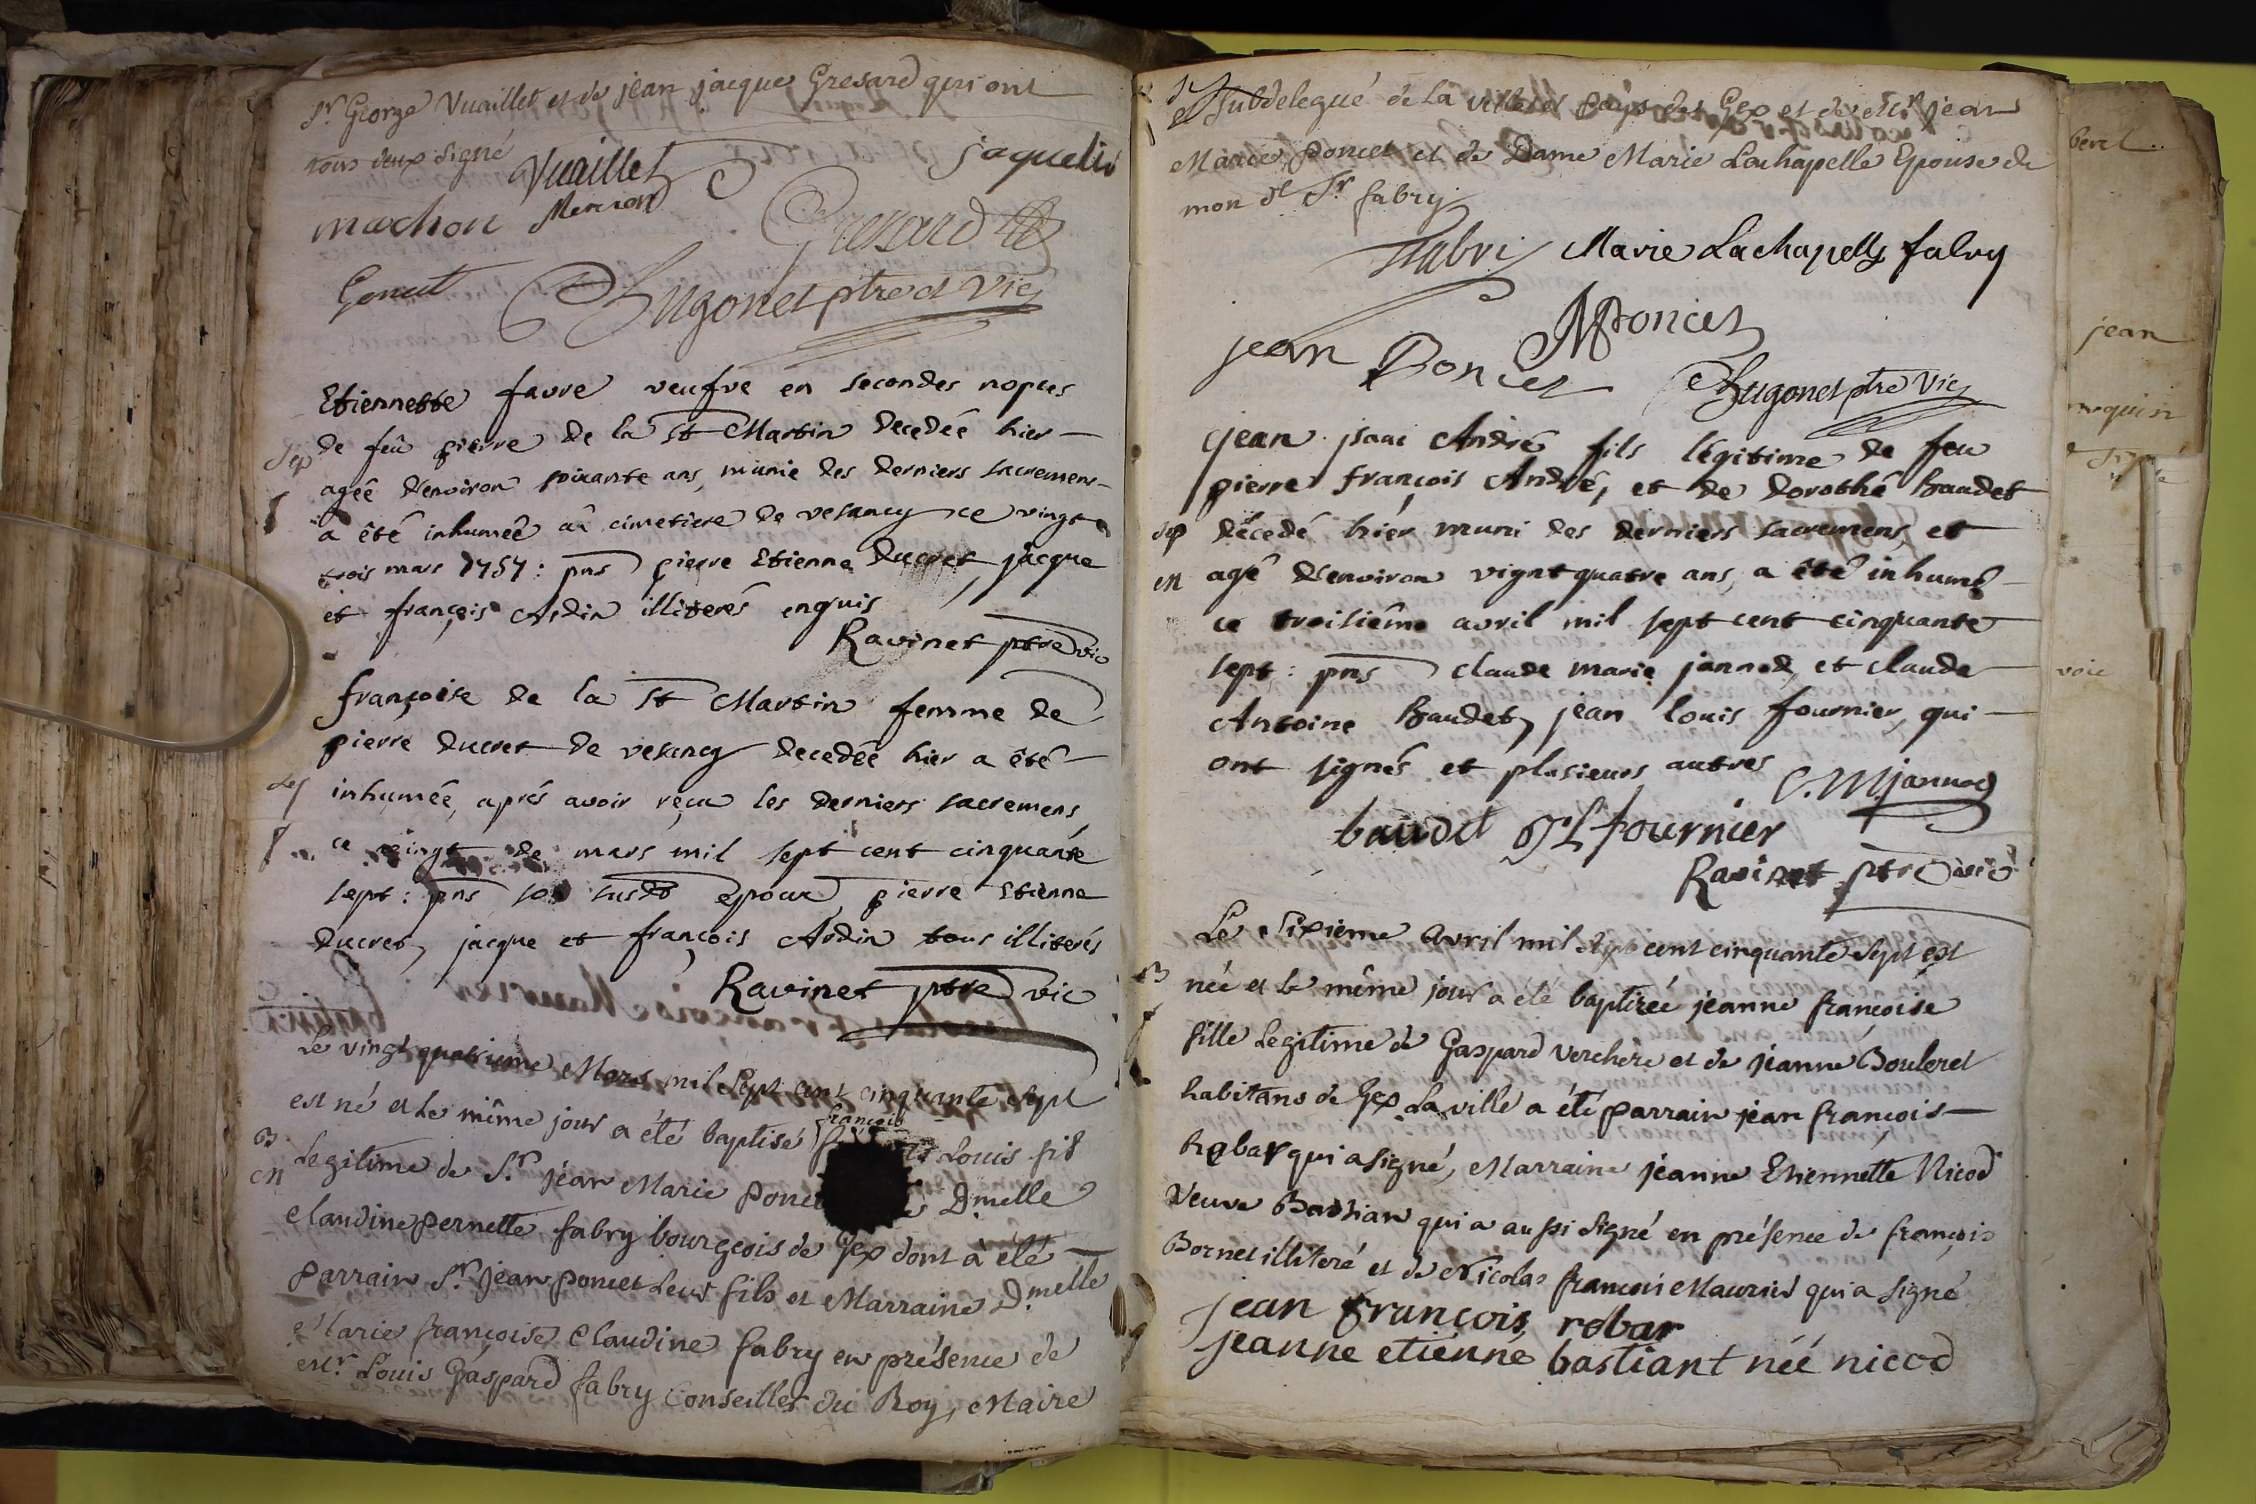 Sr. George Vuaillet et de jean jacque Gresard qui ont
tous deux signé
Vuaillet jaquelin
machon Mercier
Gresard
Genett
Hugonet ptre et Vic
Etiennette favre veufve en secondes nopces
de feû pierre de la St Martin decedée hier
agée d'environ soixante ans, munie des derniers sacremens
a êté inhumée aû cimetiere de vesancy ce vingt
trois mars 1757 : pns pierre Etienne Ducret, jacque
et françois Ardin illiterés enquis
Ravinet ptre vic
françoise de la St Martin femme de
pierre ducret de vesancy decedée hier a êté
inhumée, aprés avoir reçu les derniers sacremens
ce vingt de mars mil sept cent cinquante
sept : pns son susdt epoux, pierre Etienne
Ducret, jacque et françois Ardin tous illiterés
Ravinet ptre vic
Le vingt quatrieme Mars mil Sept cent cinquante Sept
est né et le même jour a été baptisé
françois
Louis fils
B
en
Legitime de Sr. jean Marie Poncet Dmelle
Claudine pernette fabry bourgeois de Gex dont à été
parrain Sr. jean poncet leur fils et Marraine Dmelle
Marie françoise Claudine fabry en présence de
Mr. Louis Gaspard fabry Conseiller du Roy, Maire
et Subdelegué de la ville et pays de Gex et de Mr jean
Marie poncet et de Dame Marie Lachapelle Epouse de
mon dt Sr fabry
fabri Marie Lachapelle fabry
MPoncet
jean Poncet
Hugonet ptre Vic
jean isaac André fils légitime de feu
pierre françois André, et de dorothé Baudet
sep
décédé hier muni des derniers sacremens, et
en
agé d'environ vignt quatre ans, a êté inhumé
ce troisiême avril mil sept cent cinquante
sept : pns claude marie jannod, et claude
Antoine Baudet, jean louis fournier, qui
ont signés et plusieurs autres C. M jannod
baudet JL fournier
Ravinet ptre vic
Le Sixieme Avril mil sept cent cinquante Sept est
B
née et le même jour a été baptizée jeanne françoise
fille Legitime de Gaspard Verchere et de jeanne Bouleret
habitans de Gex La ville a été parrain jean françois
Robar qui a signé, Marraine jeanne Etiennette Nicod
Veuve Bastian qui a aussi signé en présence de françois
Bornet illiteré et de Nicolas françois Maurier qui a signé
jean françois robar
jeanne etienne bastiant néé nicod
beret
jean
voie